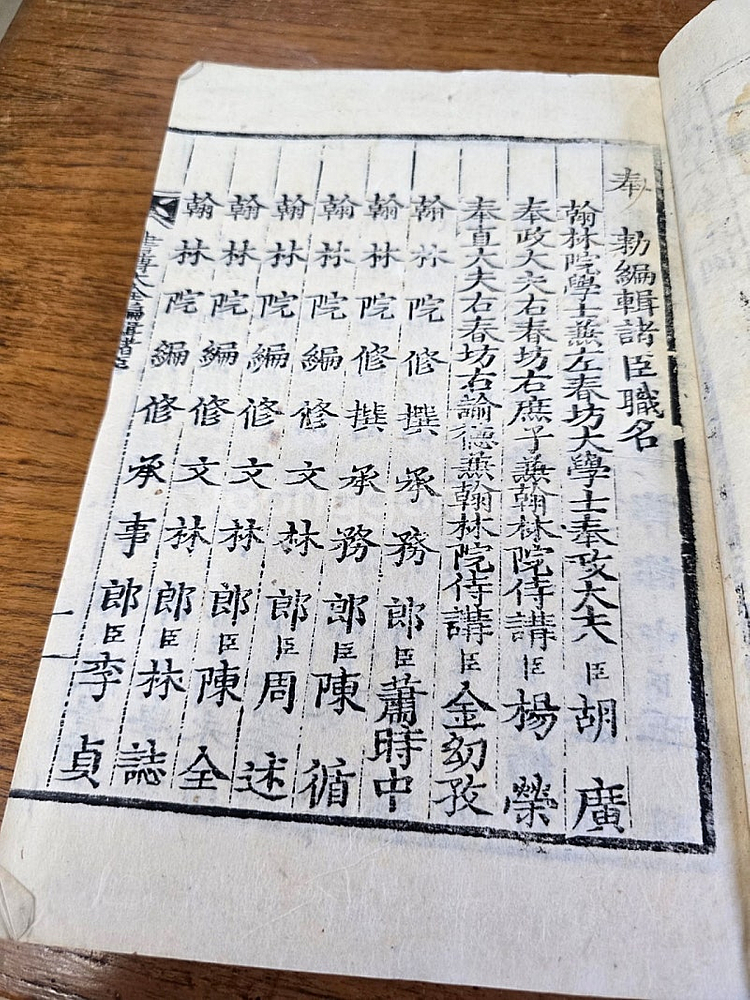 奉 勑編輯諸臣職名
翰林院學士兼左春坊大學士奉政大夫臣胡廣
奉政大夫右春坊右庶子兼翰林院侍講臣楊榮
奉直大夫右春坊右諭德兼翰林院侍講臣金幼孜
翰林院修撰承務郎臣蕭時中
翰林院修撰承務郎臣陳循
翰林院編修文林郎臣周述
翰林院編修文林郎臣陳全
翰林院編修文林郎臣林誌
翰林院編修承事郎臣李貞
書傳大全編輯諸臣
一